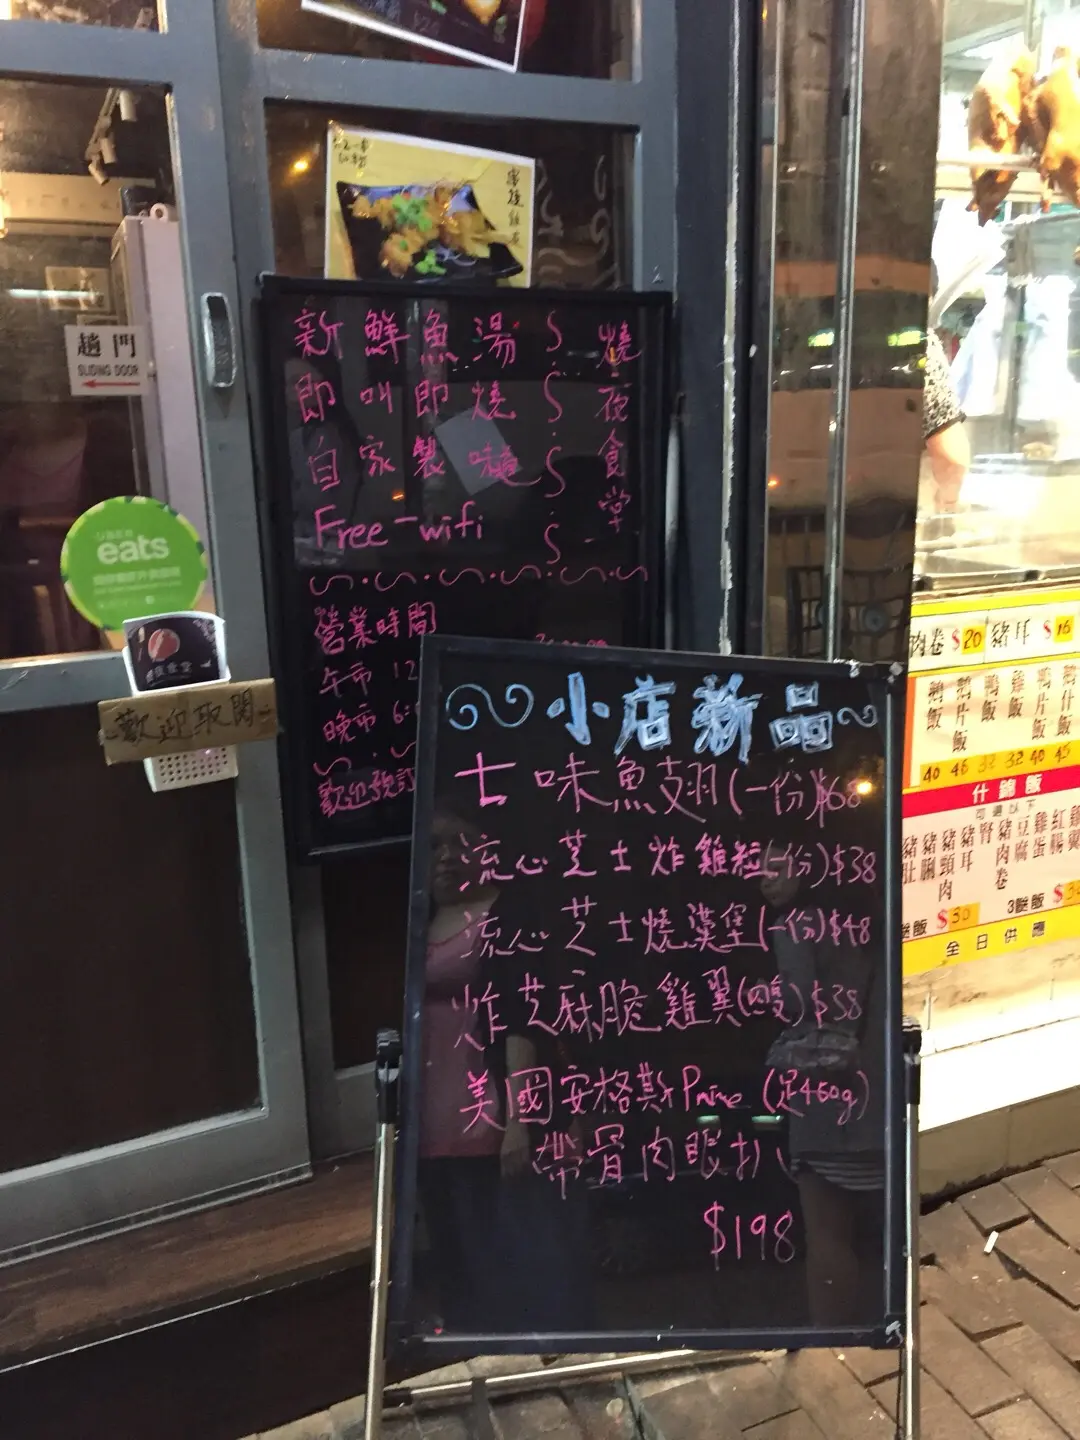 趟門
SLIDING DOOR
eats
歡迎取閱
新鮮魚湯
即叫即燒
自家製
Free-wifi
燒夜食堂
營業時間
午市 12
晚市 6:
歡迎預訂
小店新品
七味魚翅(一份)$68
流心芝士炸雞粒(一份)$38
流心芝士燒漢堡(一份)$48
炸芝麻脆雞翼(四隻)$38
美國安格斯Prime(足460g)
帶骨肉眼扒
$198
肉卷 $20 豬耳 $16
鵝飯
鵝片飯
鴨飯
雞飯
鴨片飯
40 46 32 32 40 45
什錦飯
可選以下
豬肚
豬脷
豬頸肉
豬耳
腎
豬肉卷
豆腐
雞蛋
紅腸
飯 $30
3餸飯 $3
全日供應